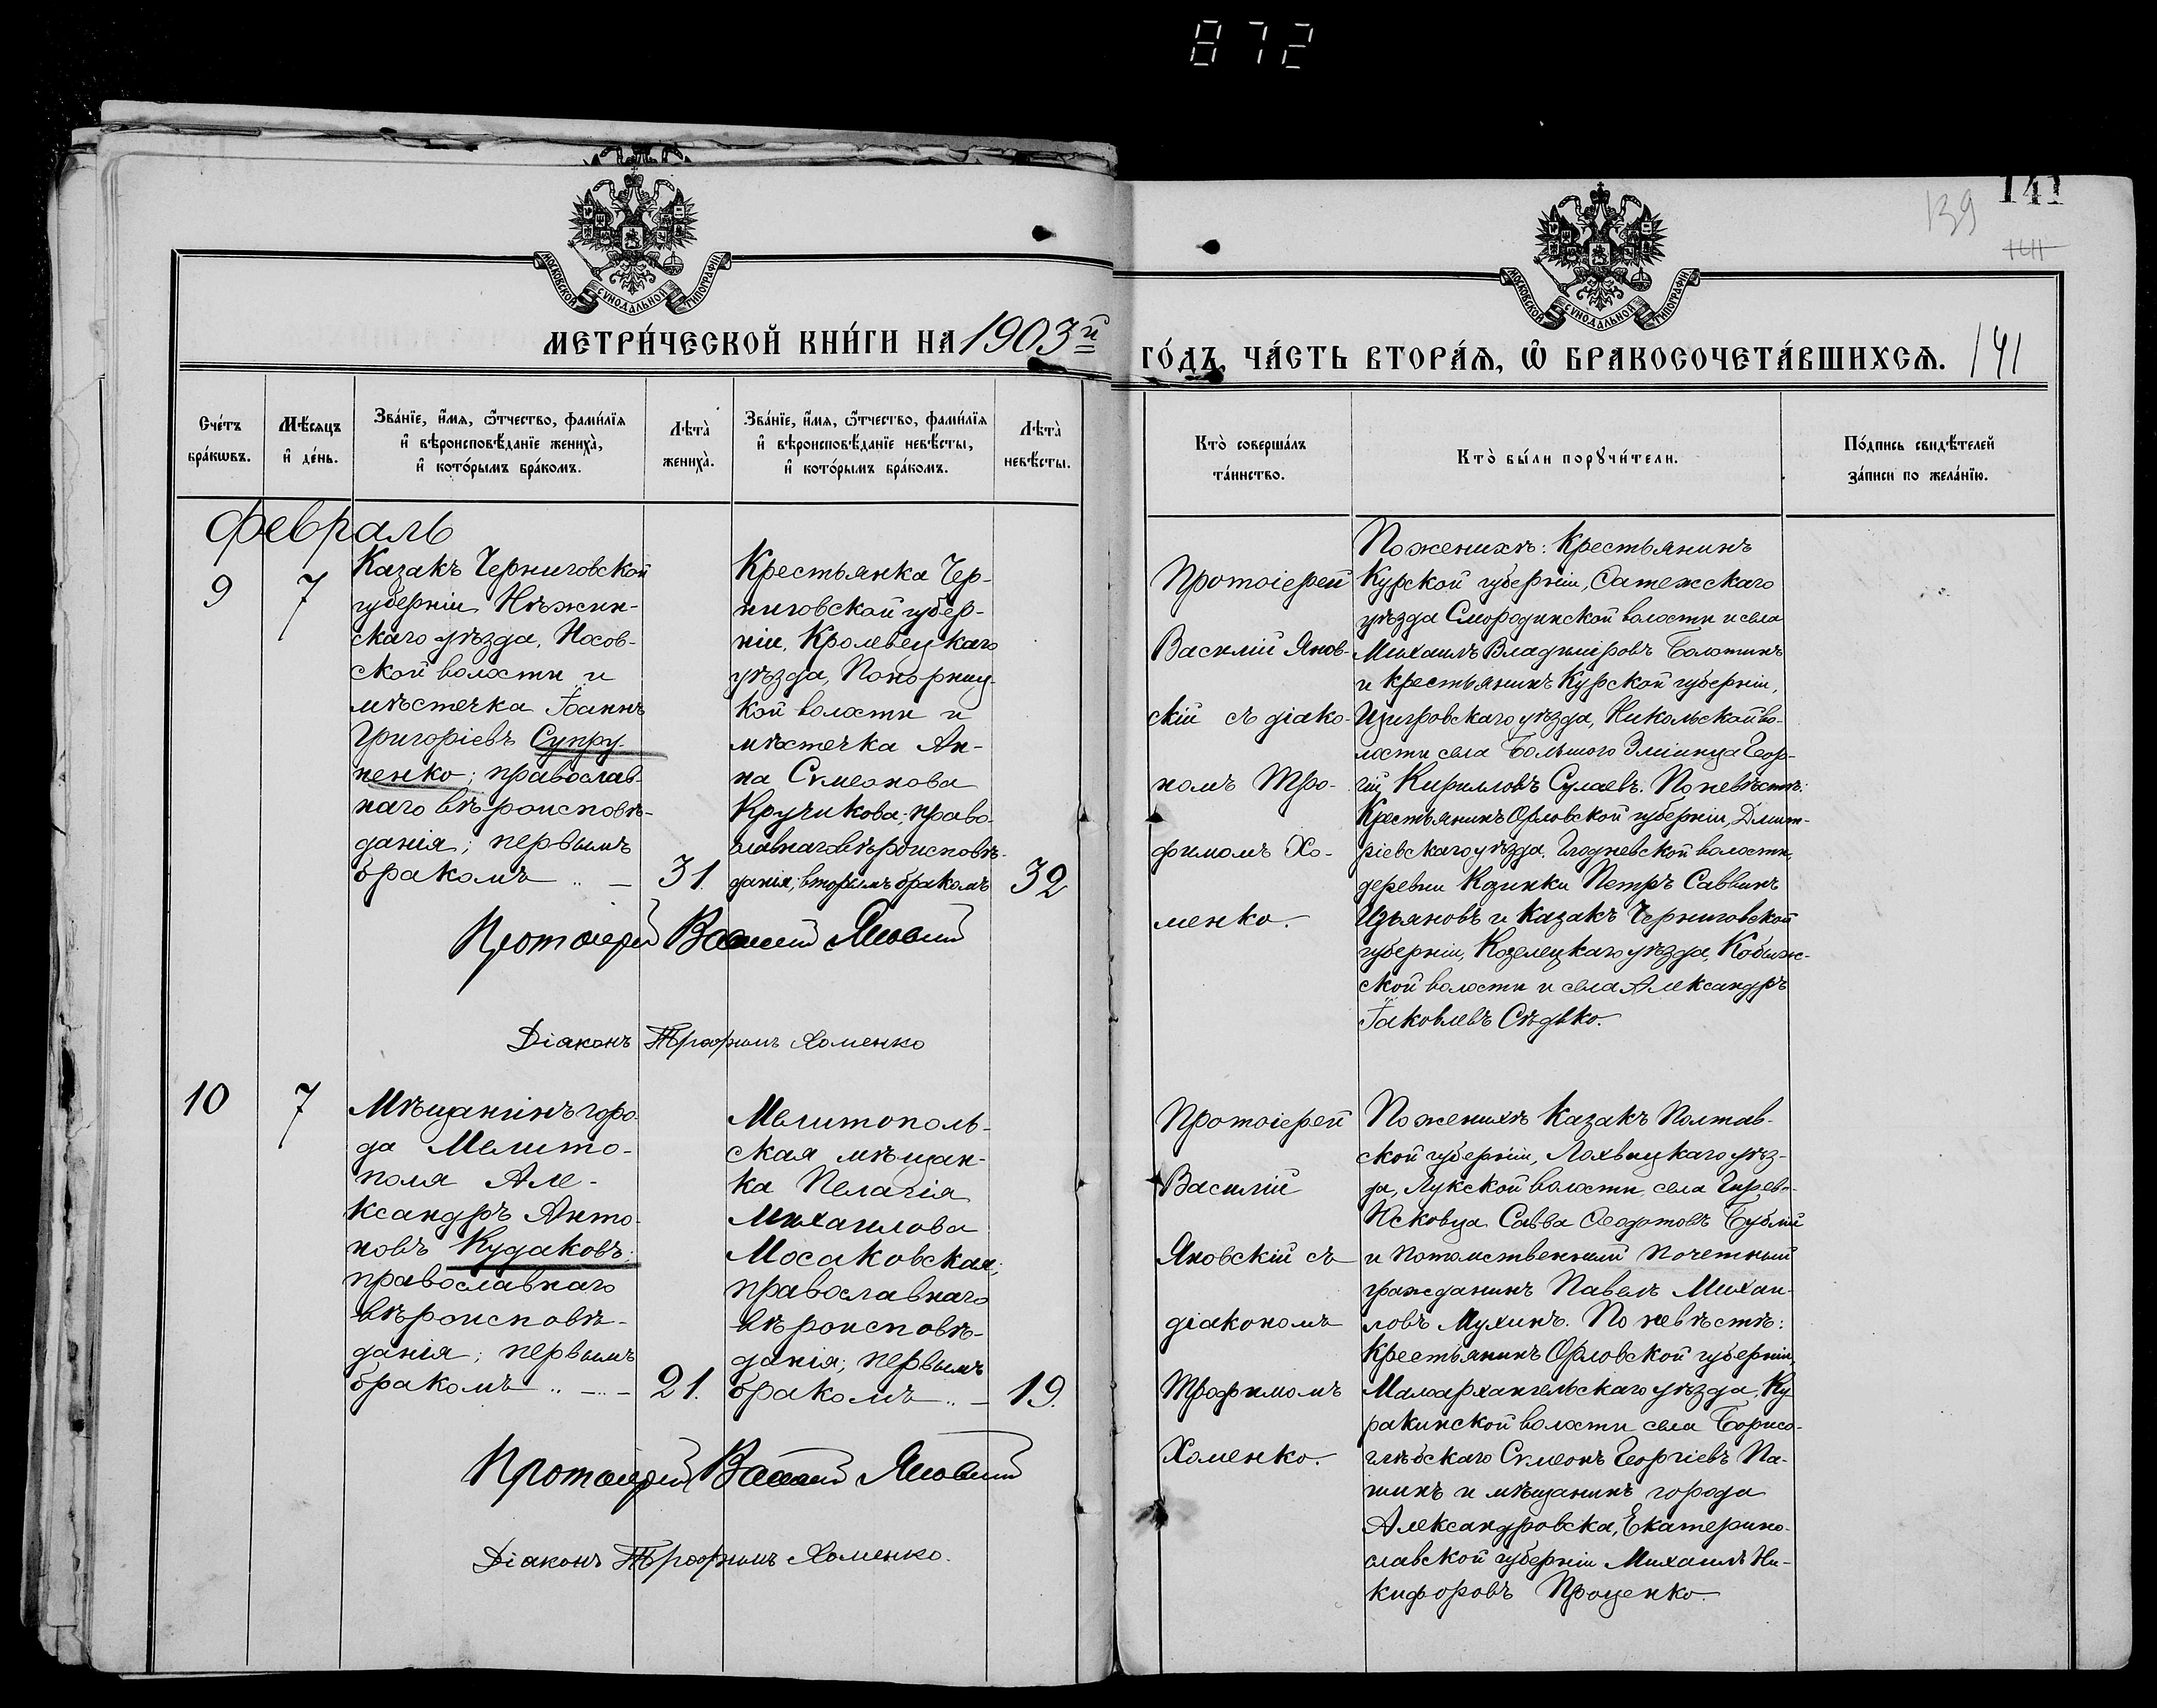 872
139
141
141
МОСКОВСКОЙ СѴНОДАЛЬНОЙ ТИПОГРАФІИ
МОСКОВСКОЙ СѴНОДАЛЬНОЙ ТИПОГРАФІИ
МЕТРИ́ЧЕСКОЙ КНИ́ГИ НА 1903й
ГО́ДЪ, ЧА́СТЬ ВТОРА́Ѧ, Ѿ БРАКОСОЧЕТА́ВШИХСѦ. 141
Сче́тъ
бра́кѡвъ.
Мѣ́сѧцъ
и҆ де́нь.
Зва́нїе, и҆́мѧ, ѻ҆́тчество, фами́лїѧ
и҆ вѣроисповѣ́данїе жениха̀,
и҆ кото́рымъ бра́комъ.
Лѣта̀
жениха̀.
Зва́нїе, и҆́мѧ, ѻ҆́тчество, фами́лїѧ
и҆ вѣроисповѣ́данїе невѣ́сты,
и҆ кото́рымъ бра́комъ.
Лѣта̀
невѣ́сты.
Кто̀ соверша́лъ
та́инство.
Кто̀ бы́ли порꙋчи́тели.
По́дпись свидѣ́телей
за́писи по жела́нїю.
Февраль
9
7
Казакъ Черниговской
губерніи Нѣжин-
скаго уѣзда, Носов-
ской волости и
мѣстечка Іоаннъ
Григоріевъ Супру-
ненко; православ-
наго вѣроисповѣ-
данія; первымъ
бракомъ
31.
Крестьянка Чер-
ниговской губер-
ніи, Кролевецкаго
уѣзда, Понорниц-
кой волости и
мѣстечка Ан-
на Сѵмеонова
Кручикова; право-
славнаго вѣроисповѣ-
данія; вторымъ бракомъ
32
Протоіерей Василій Яновскій
Діаконъ Трофимъ Хоменко
Протоіерей
Василій Янов-
скій съ діако-
номъ Тро-
фимомъ Хо-
менко.
По женихѣ: Крестьянинъ
Курской губерніи, Фатежскаго
уѣзда Смородинской волости и села
Михаилъ Владиміровъ Болотинъ
и крестьянинъ Курской губерніи,
Щигровскаго уѣзда, Никольской во-
лости села Большого Змеинца Геор-
гій Кирилловъ Сулаевъ. По невѣстѣ:
Крестьянинъ Орловской губерніи, Дмит-
ріевскаго уѣзда, волости,
деревни Козинки Петръ Саввинъ
Изъяновъ и Казакъ Черниговской
губерніи, Козелецкаго уѣзда, Кобыж-
ской волости и села Александръ
Іаковлевъ Сѣдько.
10
7
Мѣщанинъ горо-
да Мелито-
поля Але-
ксандръ Анто-
новъ Кудаковъ;
православнаго
вѣроисповѣ-
данія; первымъ
бракомъ
21.
Мелитополь-
ская мѣщан-
ка Пелагія
Михаилова
Мосаковская;
православнаго
вѣроисповѣ-
данія; первымъ
бракомъ
19.
Протоіерей Василій Яновскій
Діаконъ Трофимъ Хоменко.
Протоіерей
Василій
Яновскій съ
діакономъ
Трофимомъ
Хоменко.
По женихѣ Казакъ Полтав-
ской губерніи, Лохвицкаго уѣз-
да, Лукской волости, села Гирев-
Исковца Савва Ѳеодотовъ Бублій
и потомственный почетный
гражданинъ Павелъ Михаи-
ловъ Мухинъ. По невѣстѣ:
Крестьянинъ Орловской губерніи,
Малоархангельскаго уѣзда, Ку-
ракинской волости села Борисо-
глѣбскаго Сѵмеонъ Георгіевъ Па-
шинъ и мѣщанинъ города
Александровска, Екатерино-
славской губерніи Михаилъ Ни-
кифоровъ Проценко.